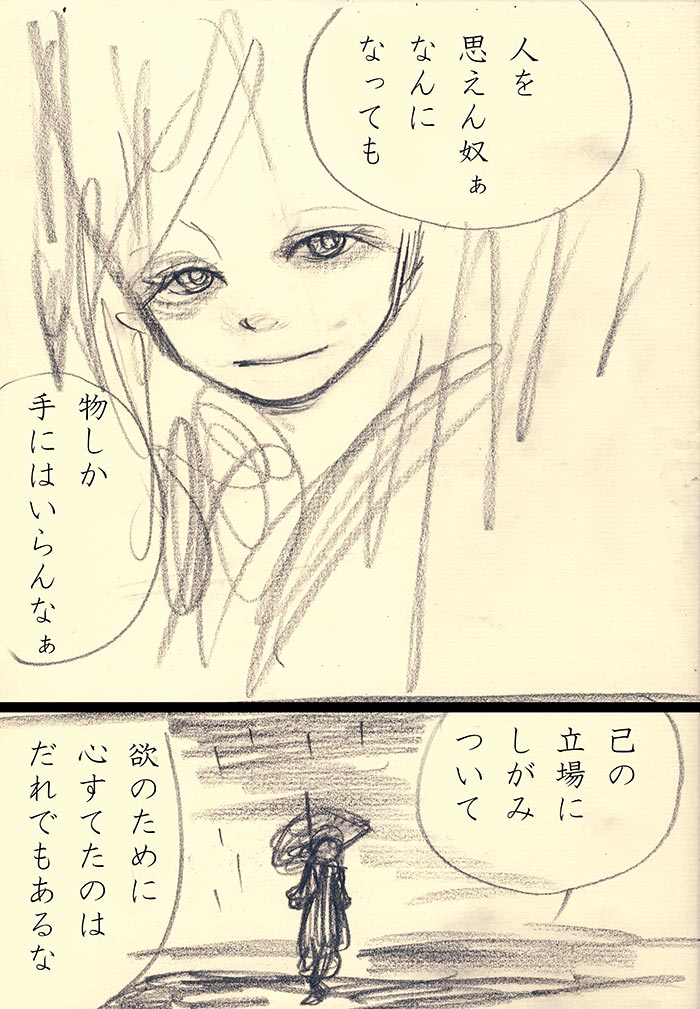 人を
思えん奴ぁ
なんに
なっても
物しか
手にはいらんなぁ
己の
立場に
しがみ
ついて
欲のために
心すてたのは
だれでもあるな